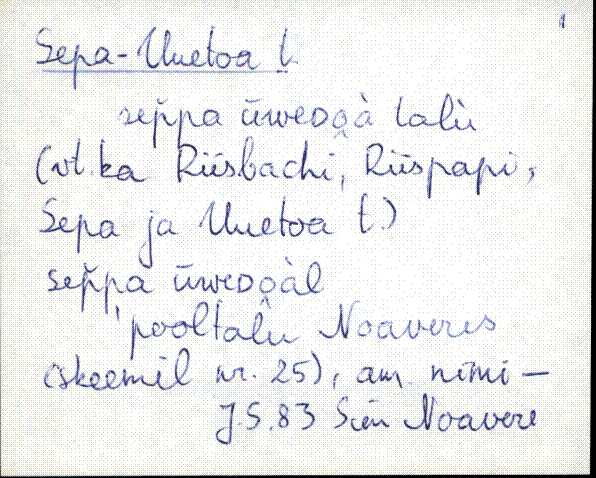 1
Sepa-Uuetoa t.
sep̆pa ūweᴅo̭à talù
(vt. ka Riisbachi, Riispapi,
Sepa ja Uuetoa t.)
sep̆pa ūweᴅo̭àl
'pooltalu Noaveres
(skeemil nr. 25), am. nimi –
J.S. 83 Noavere